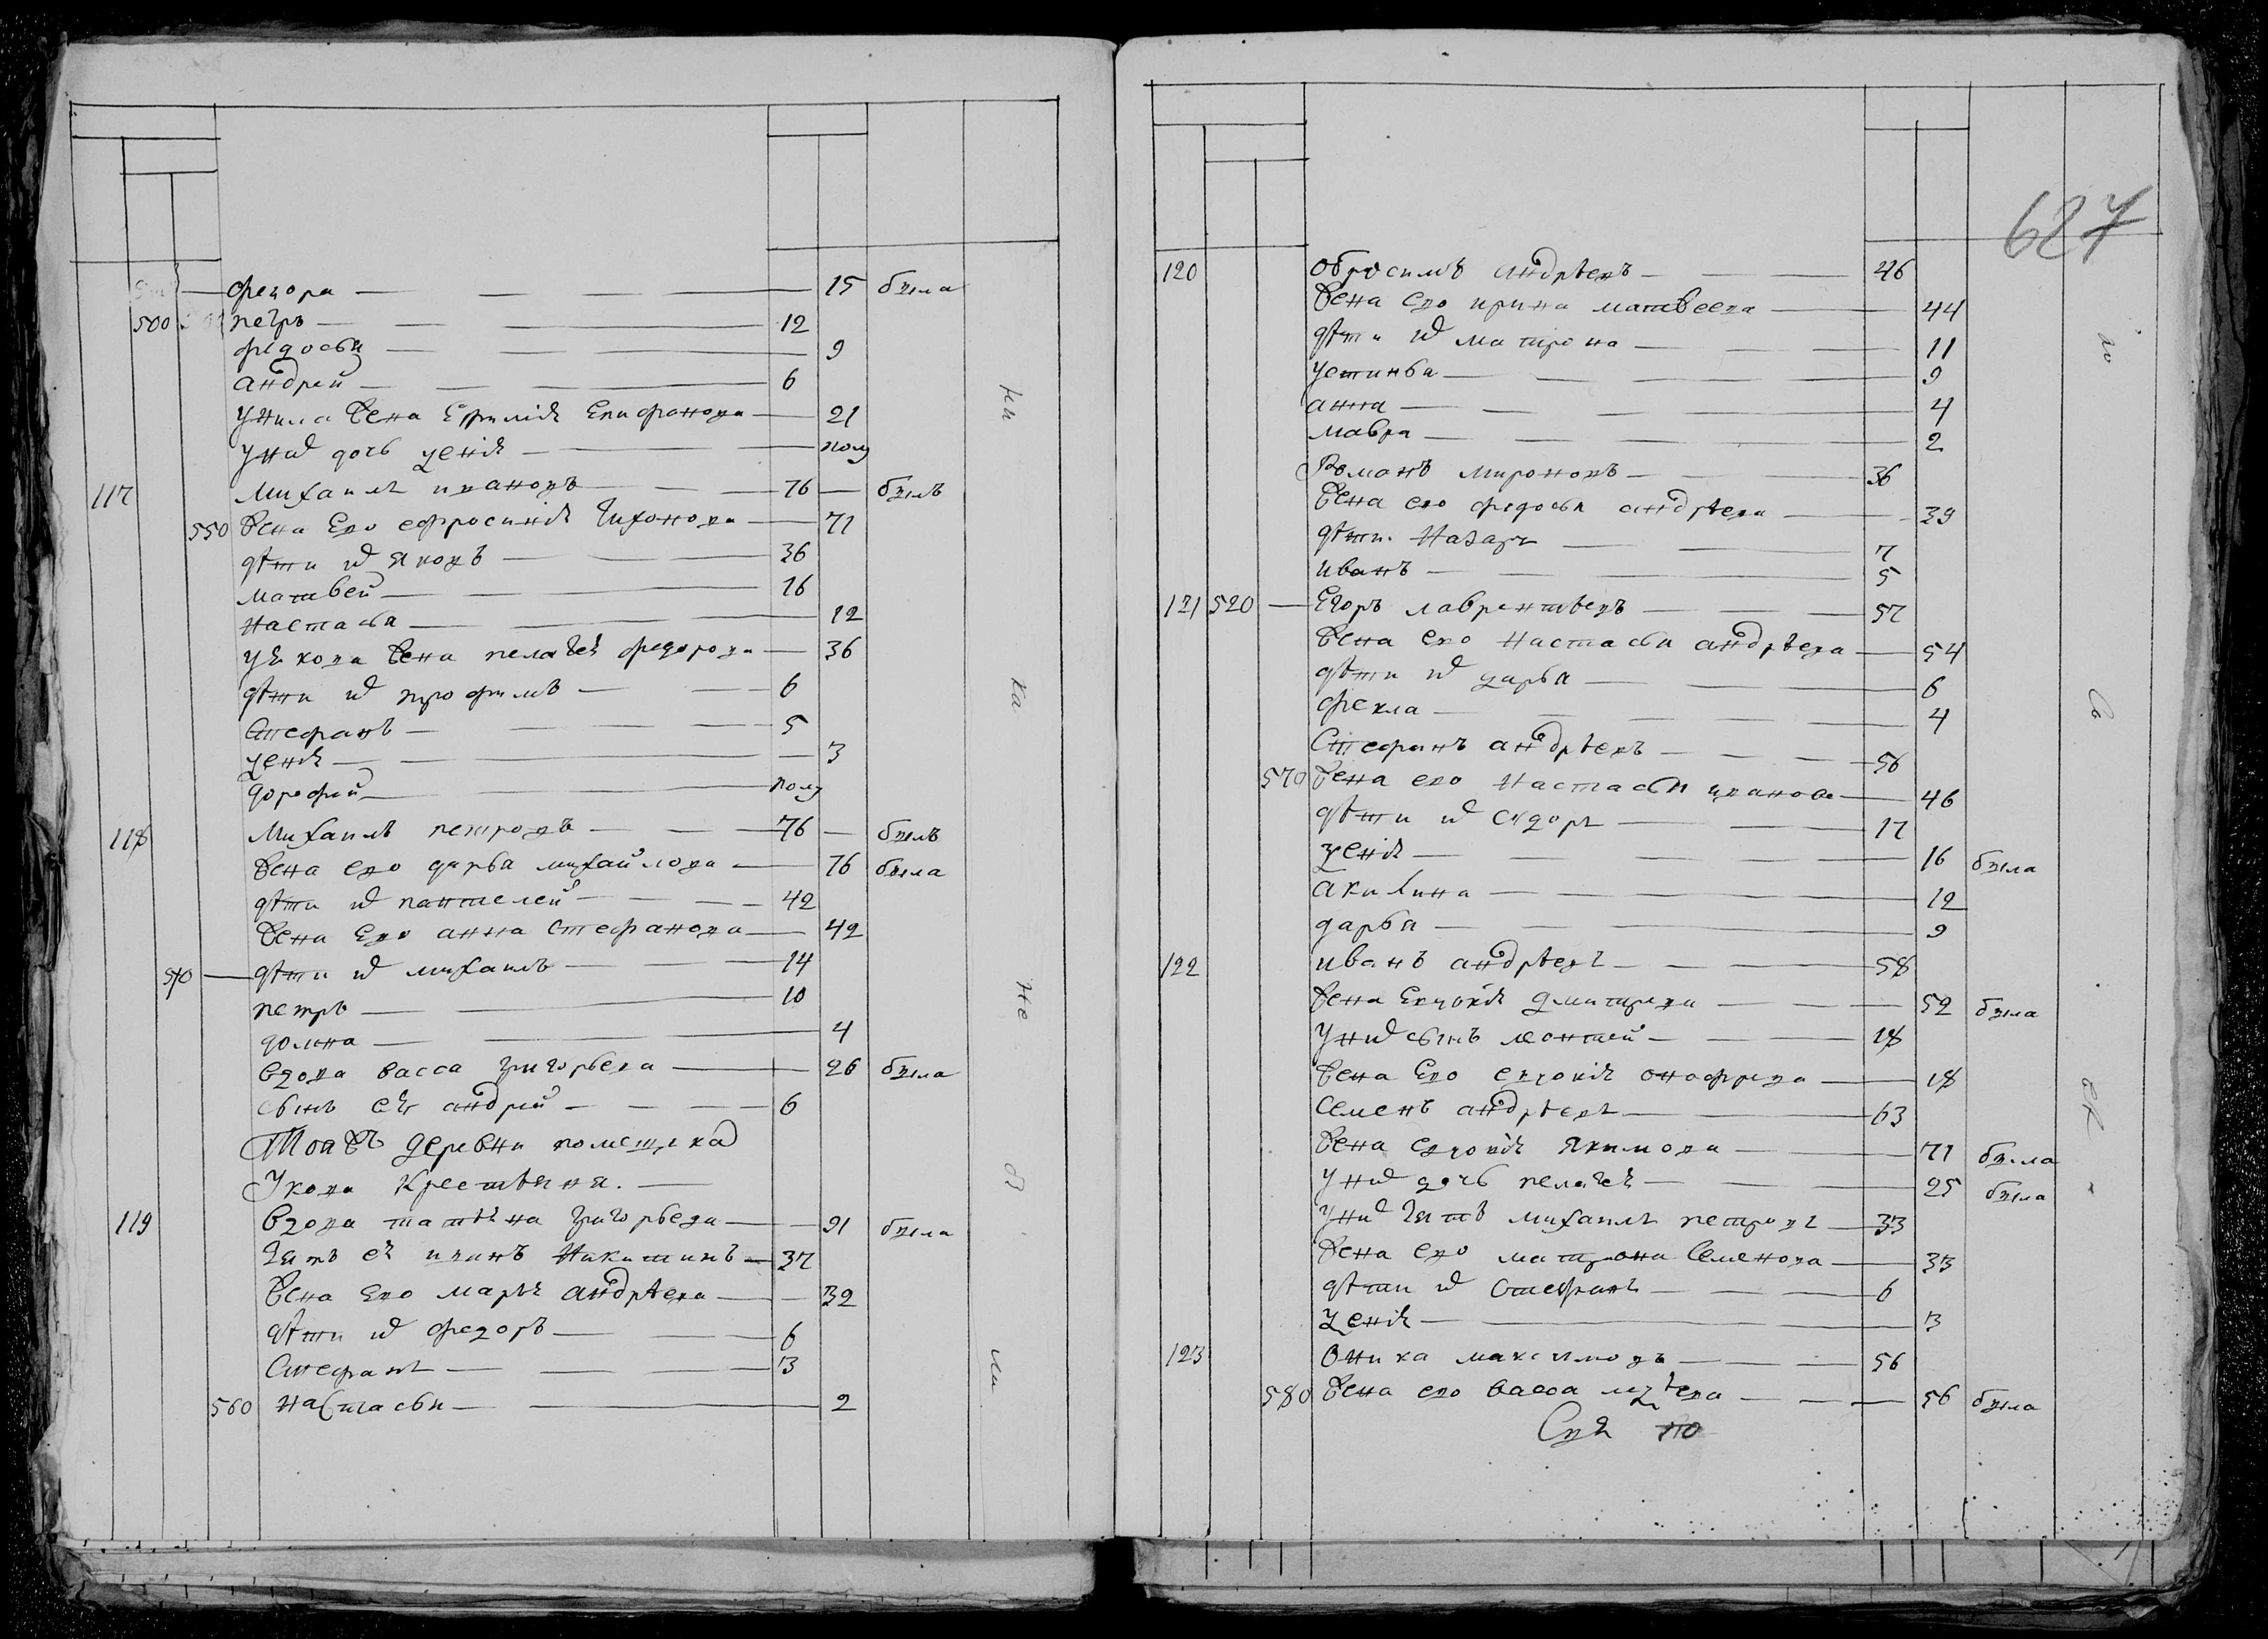 феѡора 15 была
500 петръ 12
федосья 9
андрей 6
Унила жена Ефимія Епифанова 21
Унихъ дочь ѯенія полу
117 михаилъ ивановъ 76 былъ
550 жена Ево ефросинія тихонова 71
дѣти ихъ яковъ 36
матвей 16
настасья 12
Уякова жена пелагея федорова 36
дѣти ихъ трофимъ 6
Стефанъ 5
ѯенія 3
дорофей полу
118 михаилъ петровъ 76 былъ
жена ево дарья михайлова 76 была
дѣти ихъ пантелей 42
жена Ево анна Стефанова 42
510 дѣти ихъ михаилъ 14
петръ 10
домна 4
вдова васса григорьева 26 была
сынъ ея андрей 6
Тояжъ деревни помещика
Укова Крестьяня.
119 вдова татияна григорьева 91 была
зять ея иванъ Никитинъ 37
жена Ево марья андрѣева 32
дѣти ихъ федоръ 6
Стефанъ 3
560 настасья 2
ни
ка
не
в
ли
627
120 обросимъ андрѣевъ 46
жена ево ирина матвеева 44
дѣти ихъ матрона 11
устинья 9
анна 4
мавра 2
Романъ мироновъ 36
жена ево федосья андрѣева 39
дѣти Назаръ 7
иванъ 5
121 520 Егоръ лаврентьевъ 57
жена ево настасья андрѣева 54
дѣти ихъ дарья 6
фекла 4
Стефанъ андрѣевъ 56
570 жена ево настасья иванова 46
дѣти ихъ сидоръ 17
ѯенія 16 была
акилина 12
дарья 9
122 иванъ андрѣевъ 58
жена Евдокія дмитрева 52 была
Унихъ сынъ леонтей 18
жена Ево евдокія онофрева 18
Семенъ андрѣевъ 63
жена евдокія Якимова 71 была
Унихъ дочь пелагея 25 была
Унихъ зять михаилъ петровъ 33
жена ево матрона Семенова 33
дѣти ихъ Стефанъ 6
ѯенія 3
123 Оника максимовъ 56
580 жена ево васса 56 была
ло
Со